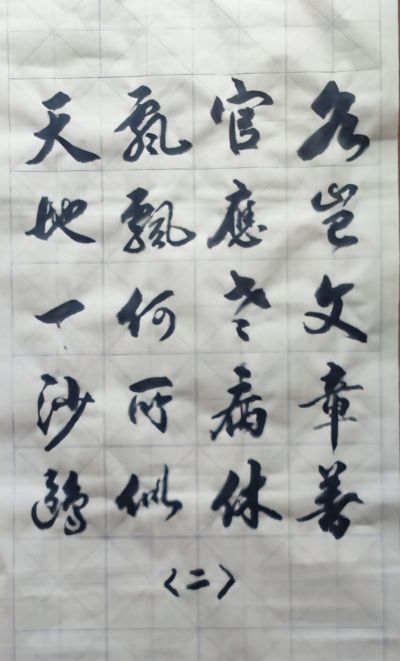 名岂文章著
官應老病休
飄飄何所似
天地一沙鷗
〈二〉